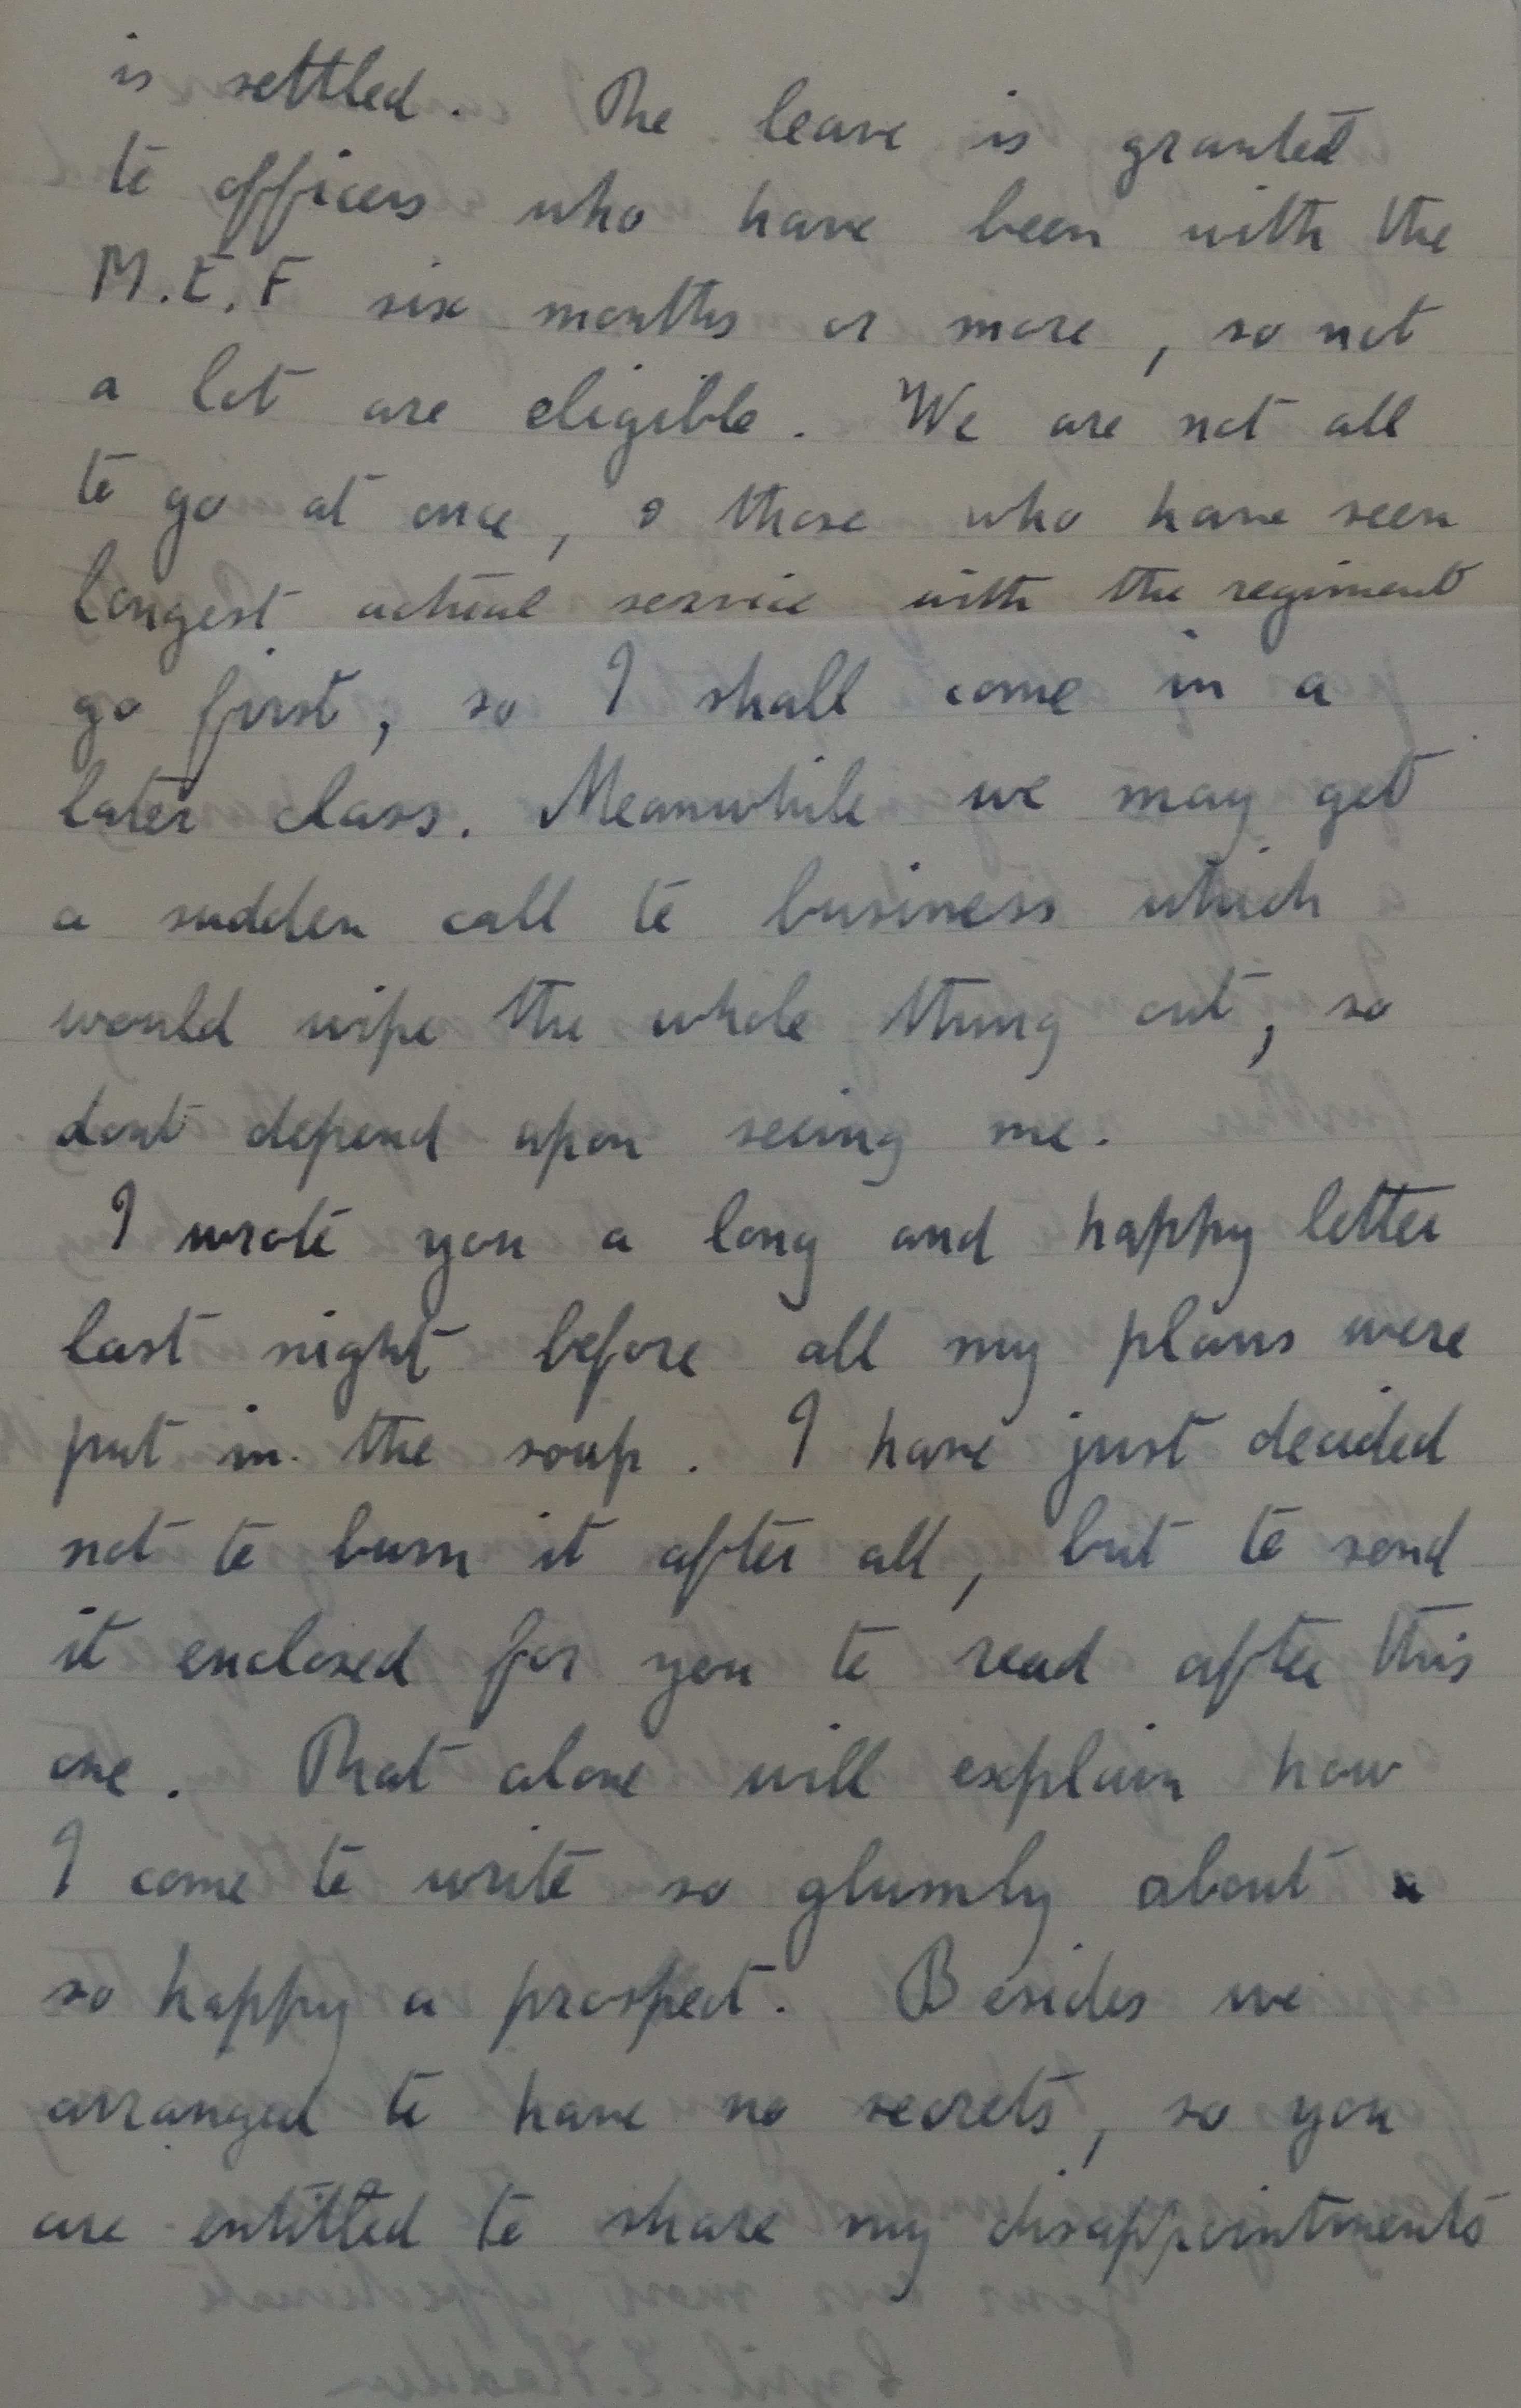 is settled. The leave is granted
to officers who have been with the
M.E.F six months or more, so not
a lot are eligible. We are not all
to go at once, & those who have seen
longest actual service with the regiment
go first, so I shall come in a
later class. Meanwhile we may get
a sudden call to business which
would wipe the whole thing out, so
dont depend upon seeing me.
I wrote you a long and happy letter
last night before all my plans were
put in the soup. I have just decided
not to burn it after all, but to send
it enclosed for you to read after this
one. That alone will explain how
I come to write so glumly about
so happy a prospect. Besides we
arranged to have no secrets, so you
are entitled to share my disappointments